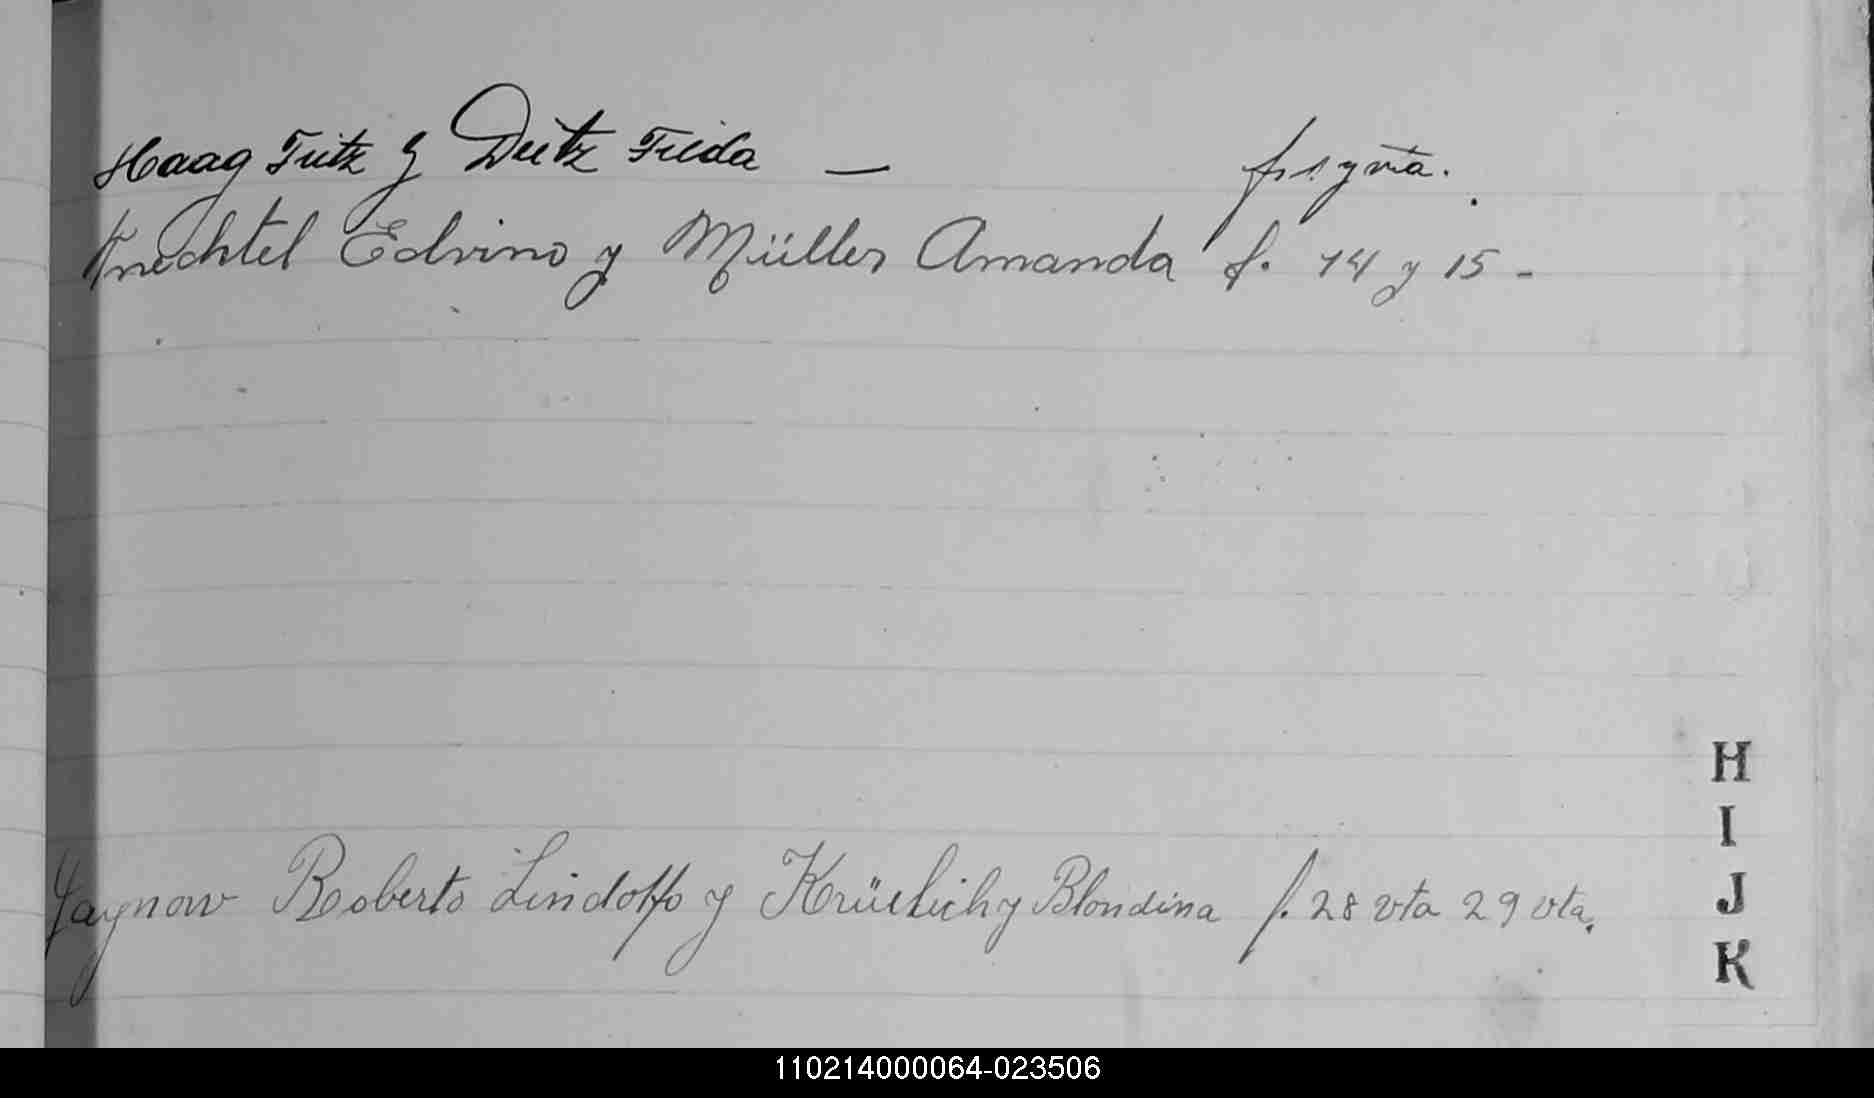 Haag Fritz y Deitz Frieda — fs 1 y vta.
Knechtel Edvino y Müller Amanda f. 14 y 15 -
H
I
Jaynow Roberto Lindolfo y Blondina f. 28 vta 29 vta.
J
K
110214000064-023506